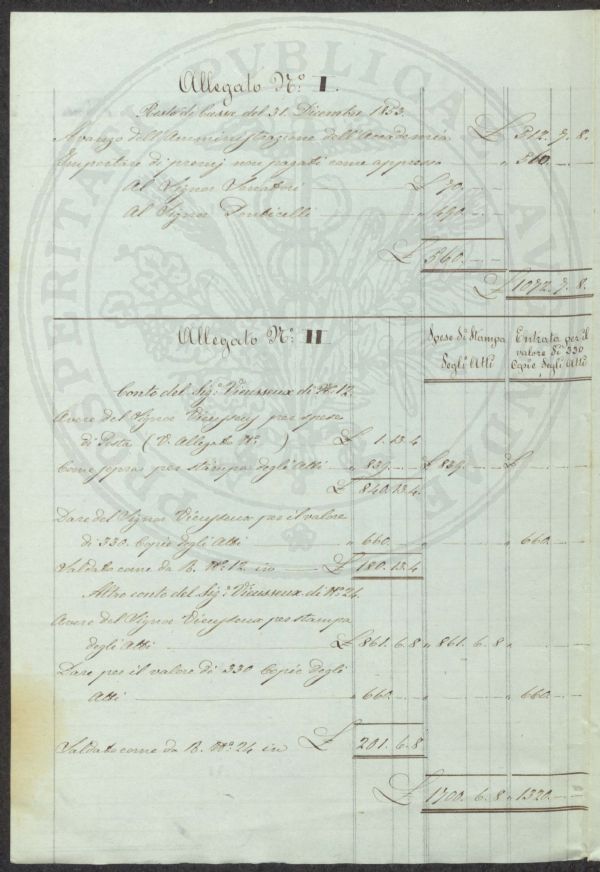 PROSPERITATI PUBLICAE AUGENDAE
Allegato N.º I.
Resto di Cassa del 31. Dicembre 1853.
Avanzo dell'Amministrazione dell'Accademia £ 512. 7. 8.
Importare di premj non pagati come appresso " 560. — —
Al Signor £ 70. — —
Al Signor Ponticelli " 490. — —
£ 560. — —
£ 1072. 7. 8.
Allegato N.º II
Spese di Stampa degli Atti
Entrata per il valore di 330 Copie degli Atti
Conto del Sig.r Vieusseux di N.º 12.
Avere del Signor Vieusseux per spese
di Posta (V. Allegato N.º ) £ 1. 13. 4
Come sopra per stampa degli Atti " 839. — — £ 839. — — £ — — —
£ 840. 13. 4.
Dare del Signor Vieusseux per il valore
di 330. Copie degli Atti " 660. — — " — — — " 660. — —
Saldato come da R. N.º 12 in £ 180. 13. 4
Altro conto del Sig.r Vieusseux di N.º 24.
Avere del Signor Vieusseux per stampa
degli Atti £ 861. 6. 8 " 861. 6. 8 "
Dare per il valore di 330 Copie degli
Atti " 660. — — " — — — " 660. — —
Saldato come da R. N.º 24 in £ 201. 6. 8
£ 1700. 6. 8 " 1320. — —